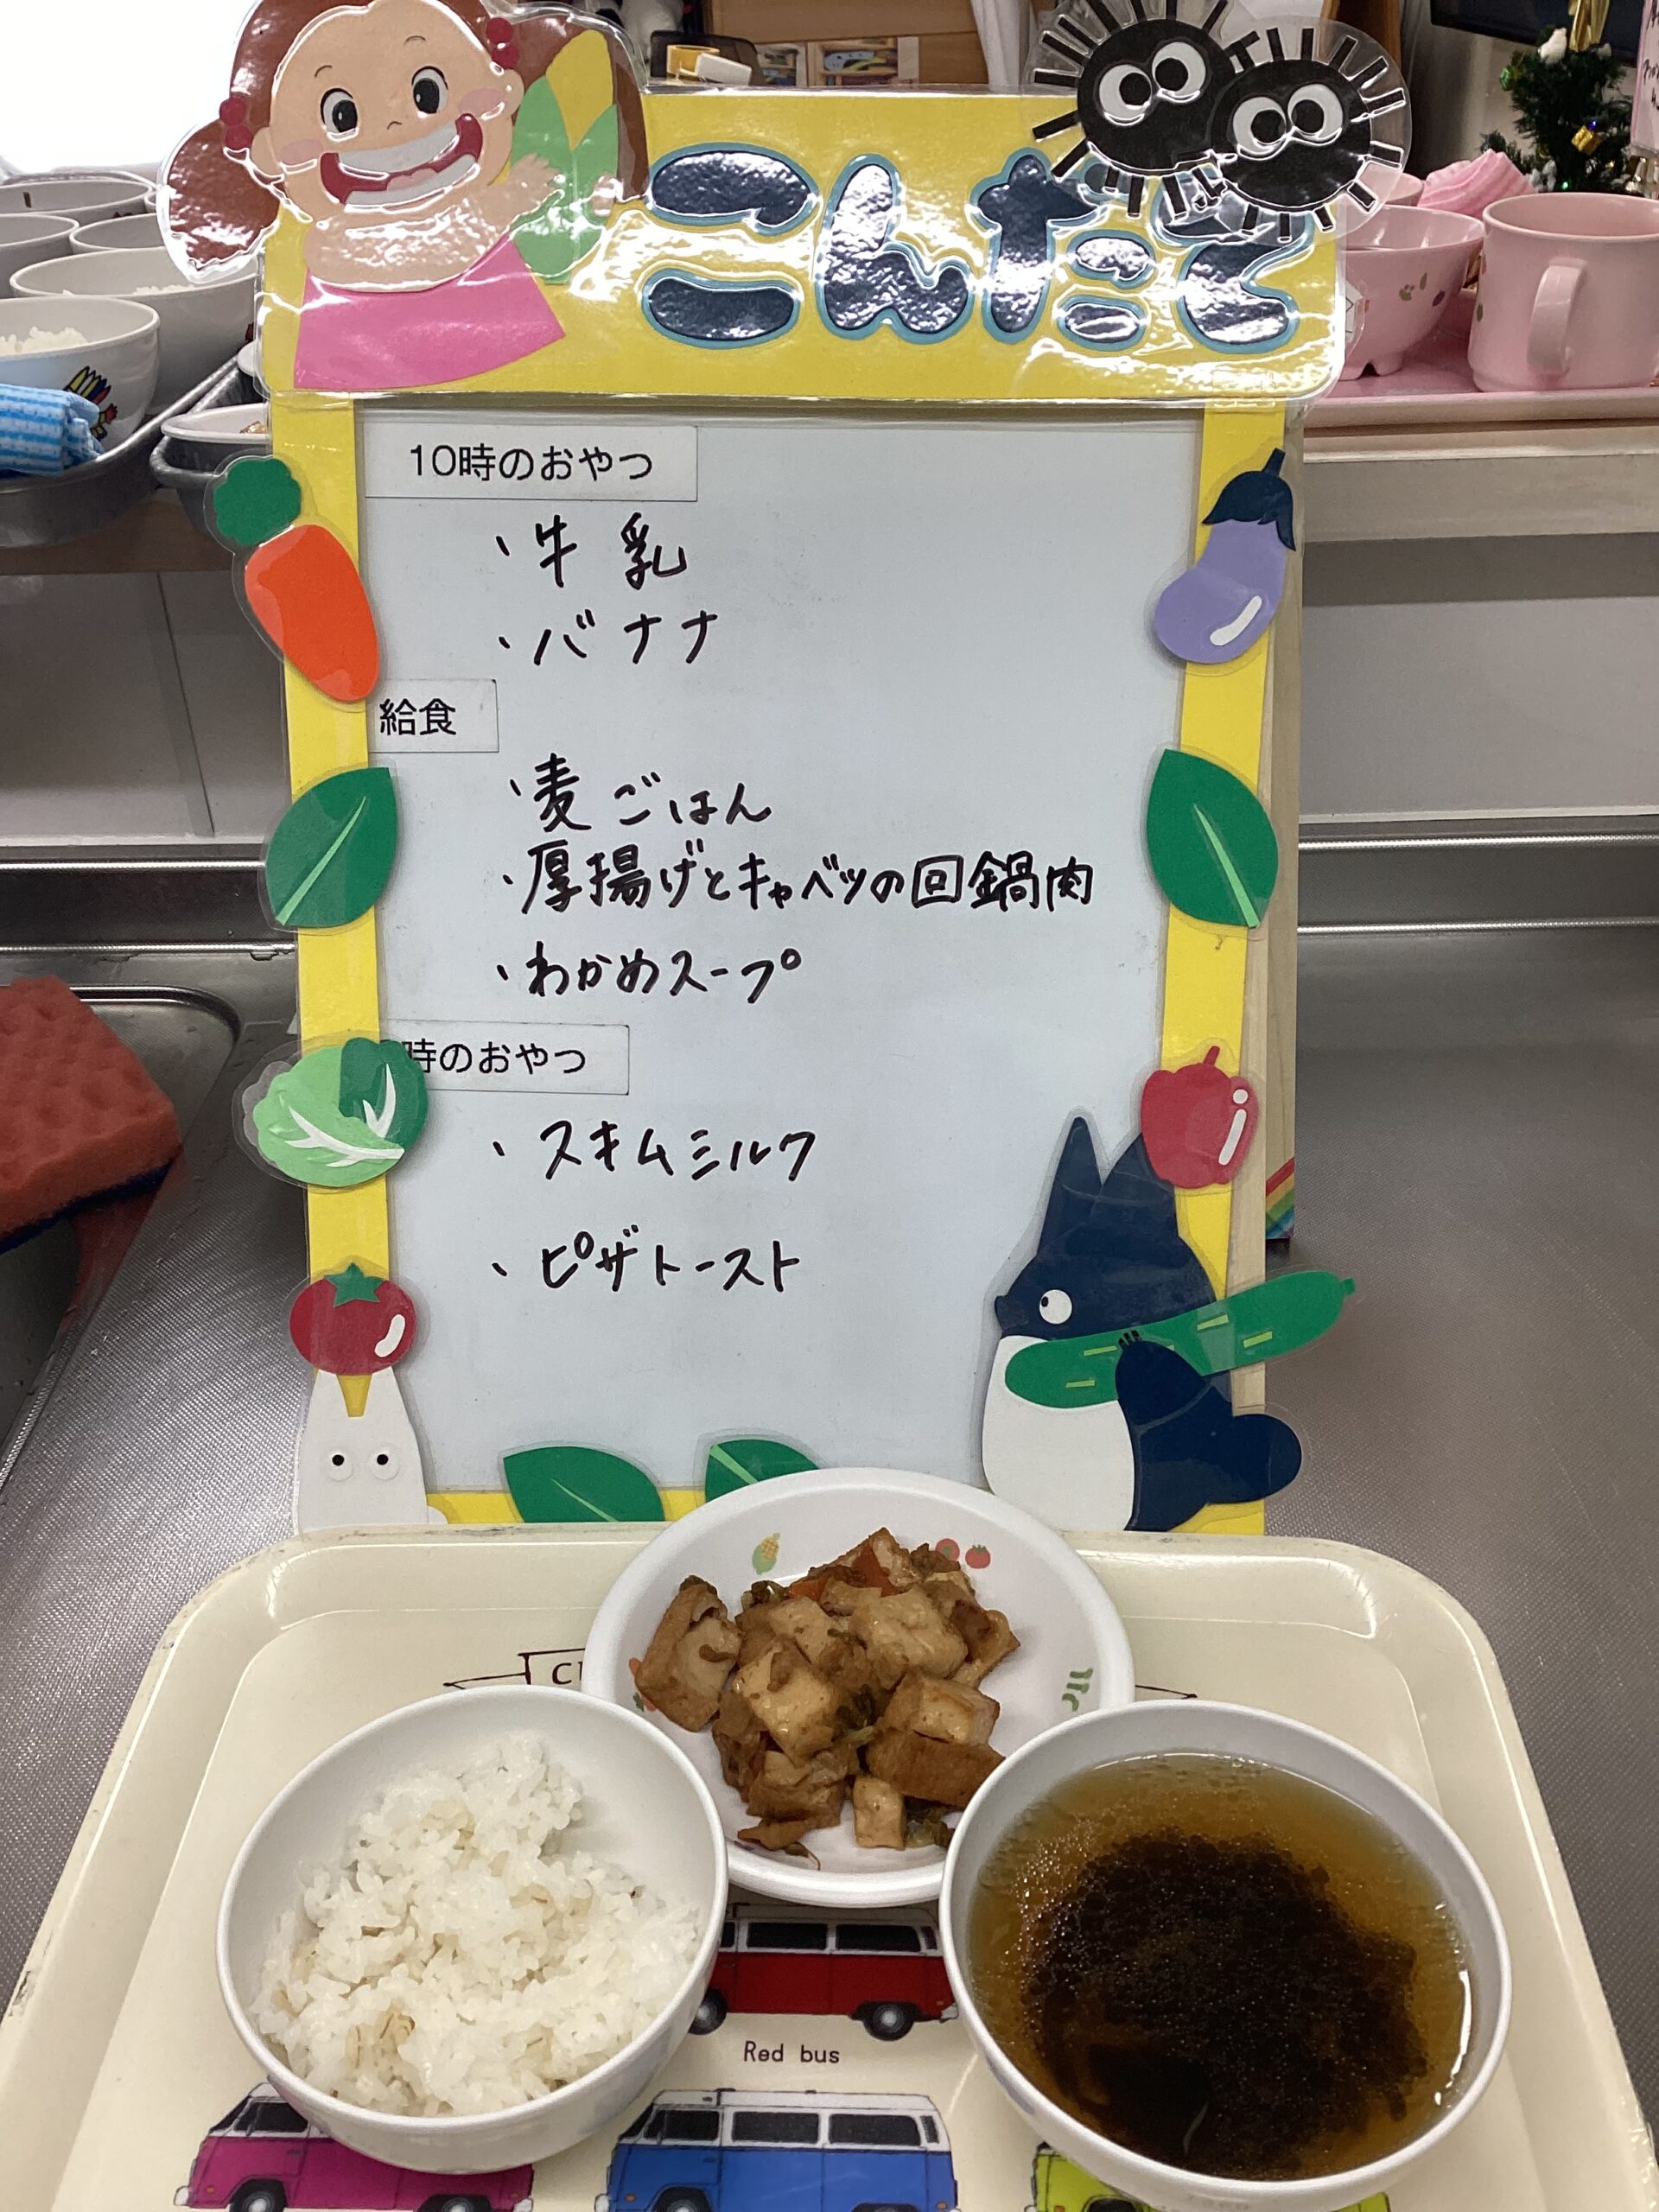 こんだて
10時のおやつ
・牛乳
・バナナ
給食
・麦ごはん
・厚揚げとキャベツの回鍋肉
・わかめスープ
時のおやつ
・スキムミルク
・ピザトースト
Red bus